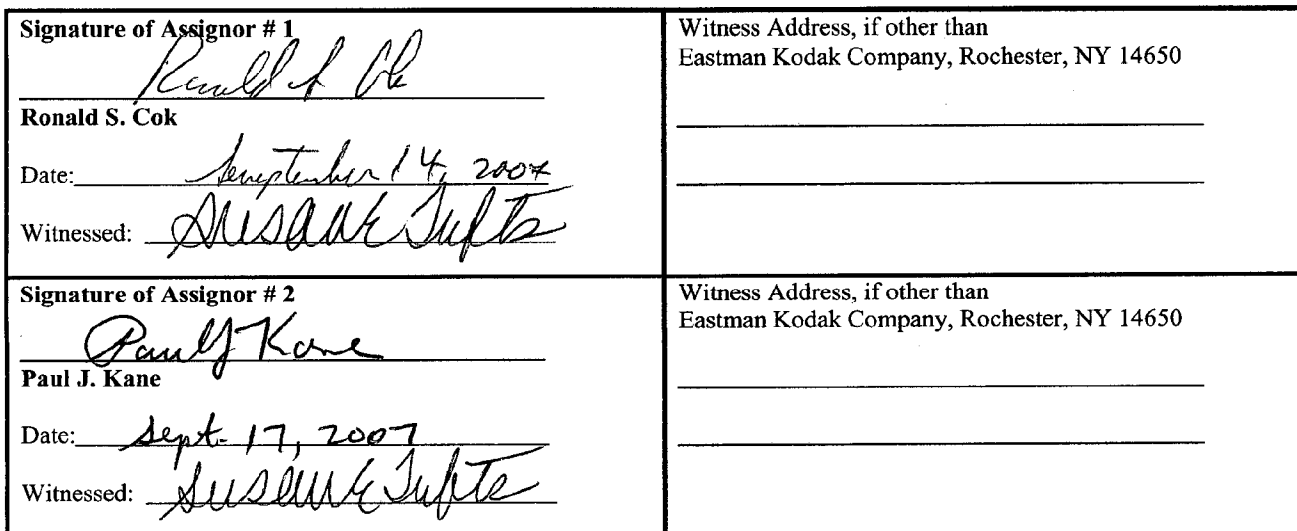 Signature of Assignor # 1
Ronald S. Cok
Ronald S. Cok
Date: September 14, 2007
Witnessed: Susan E Tufts
Witness Address, if other than
Eastman Kodak Company, Rochester, NY 14650
Signature of Assignor # 2
Paul J Kane
Paul J. Kane
Date: Sept. 17, 2007
Witnessed: Susan E Tufts
Witness Address, if other than
Eastman Kodak Company, Rochester, NY 14650